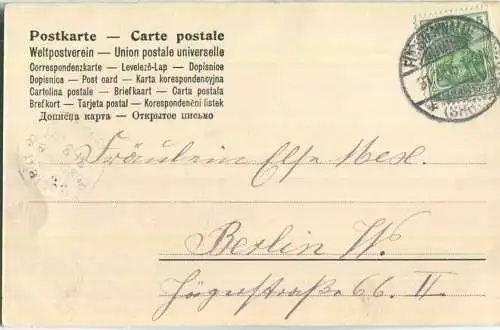 Postkarte — Carte postale
Weltpostverein — Union postale universelle
Correspondenzkarte — Levelező-Lap — Dopisnice
Dopisnica — Post card — Karta korespondencyjna
Cartolina postale — Briefkaart — Carta postala
Brefkort — Tarjeta postal — Korespondenční listek
Дописна карта — Открытое письмо
Fräulein Else
Berlin W.
Jägerstraße 66. II.